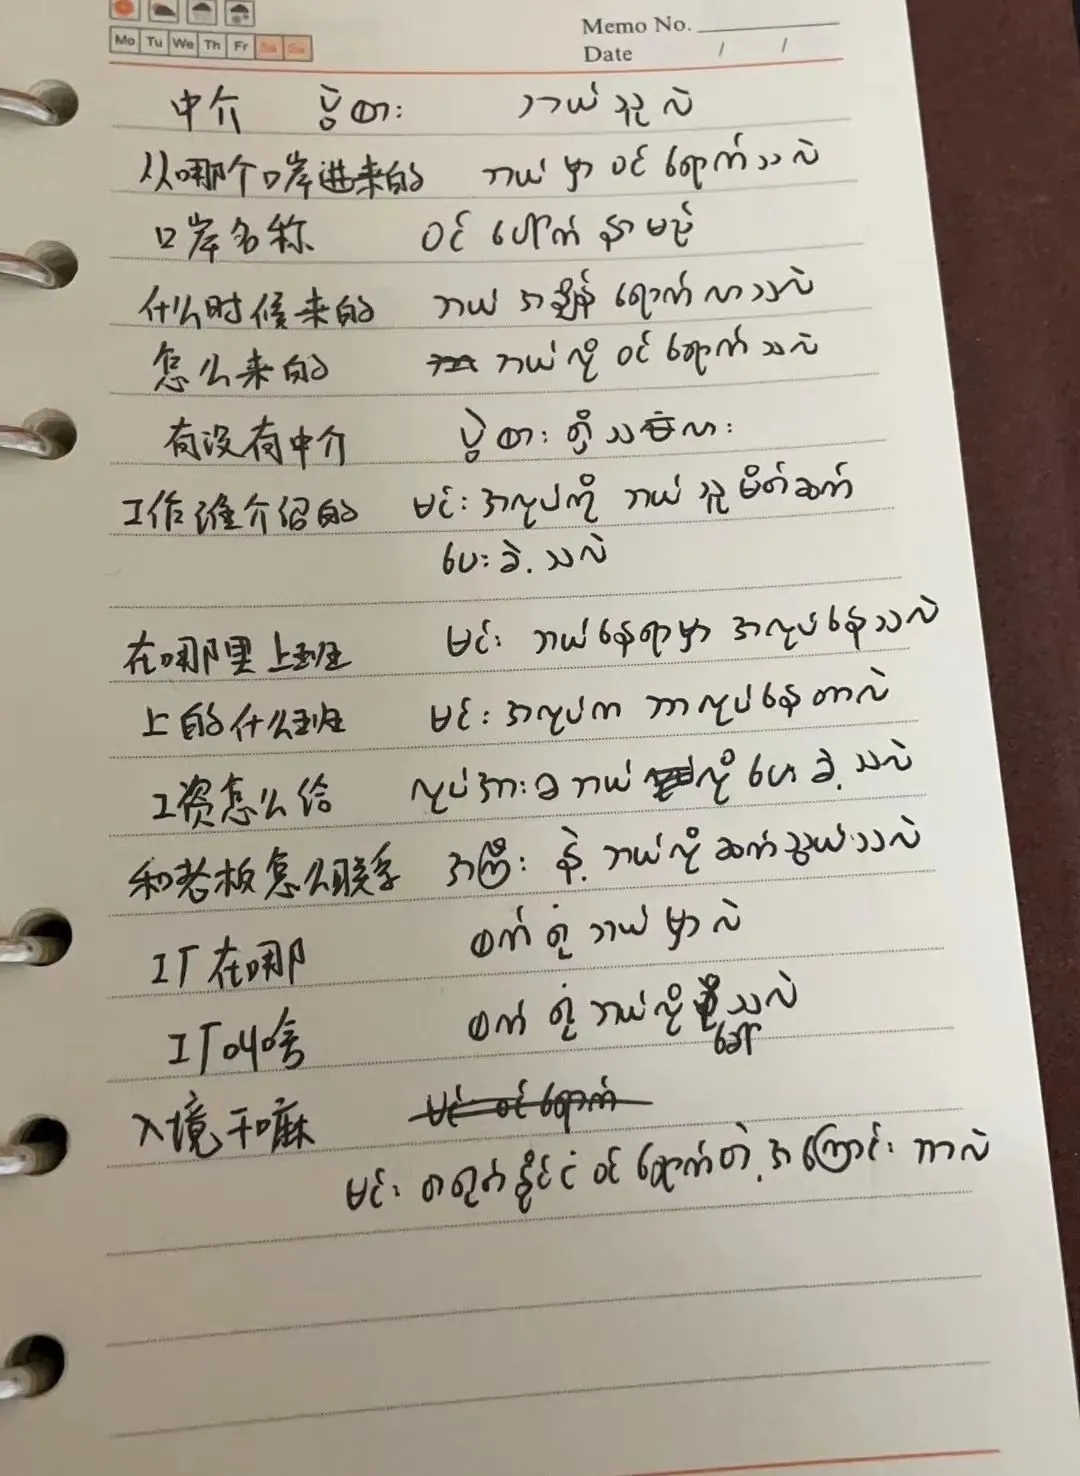 Mo Tu We Th Fr Sa Su
Memo No.
Date / /
中介 ပွဲစား ဘယ်သူလဲ
从哪个口岸进来的 ဘယ်မှာ ဝင်ရောက်သလဲ
口岸名称 ဝင်ပေါက်နာမည်
什么时候来的 ဘယ်အချိန်ရောက်လာသလဲ
怎么来的 ဘယ်လို ဝင်ရောက်သလဲ
有没有中介 ပွဲစား ရှိသလား
工作谁介绍的 မင်းအလုပ်ကို ဘယ်သူမိတ်ဆက်
ပေးခဲ့သလဲ
在哪里上班 မင်း ဘယ်နေရာမှာ အလုပ်နေသလဲ
上的什么班 မင်းအလုပ်က ဘာလုပ်နေတာလဲ
工资怎么给 လုပ်အားခ ဘယ်လိုပေးခဲ့သလဲ
和老板怎么联系 အကြီးနဲ့ ဘယ်လိုဆက်သွယ်သလဲ
工厂在哪 စက်ရုံဘယ်မှာလဲ
工厂叫啥 စက်ရုံဘယ်လိုခေါ်သလဲ
入境干嘛 မင်း ဝင်ရောက်
မင်း တရုတ်နိုင်ငံ ဝင်ရောက်တဲ့အကြောင်း ကာလဲ